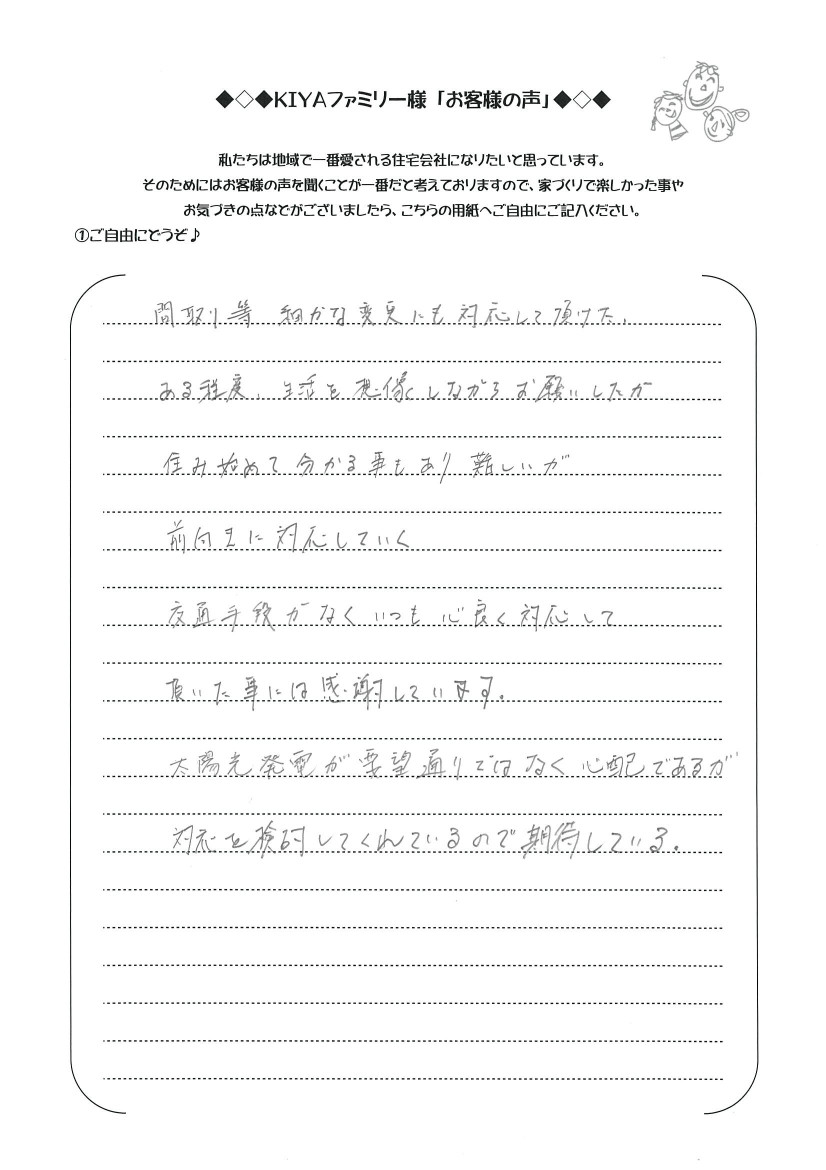 ◆◇◆KIYAファミリー様「お客様の声」◆◇◆
私たちは地域で一番愛される住宅会社になりたいと思っています。
そのためにはお客様の声を聞くことが一番だと考えておりますので、家づくりで楽しかった事や
お気づきの点などがございましたら、こちらの用紙へご自由にご記入ください。
①ご自由にどうぞ♪
間取り等 細かな変更にも対応して頂けた。
ある程度、生活を想像しながらお願いしたが
住み始めて分かる事もあり難しいが
前向きに対応していく
交通手段がなくいつも心良く対応して
頂いた事には感謝しています。
太陽光発電が要望通りではなく心配であるが
対応を検討してくれているので期待している。